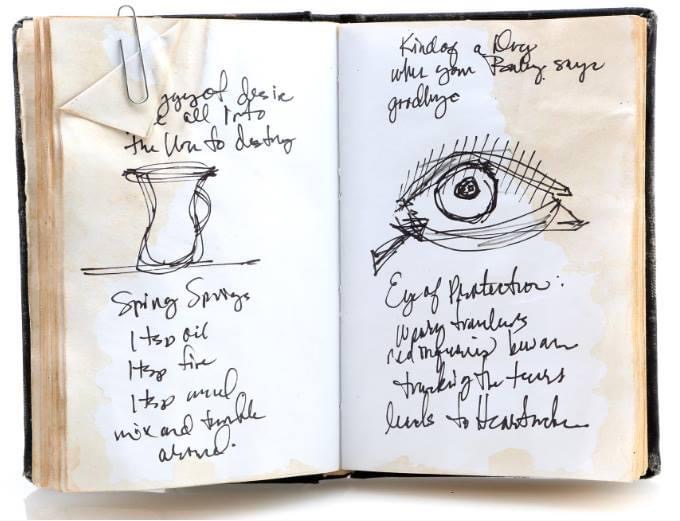 of desire
all into
the Urn to destiny
Spring Springs
1 tsp oil
1 tsp fire
1 tsp
mix and tumble
around.
Kind of a Dry
when your says
goodbye
Eye of Protection:
Weary travelers
beware
tracking the tears
leads to Heartache